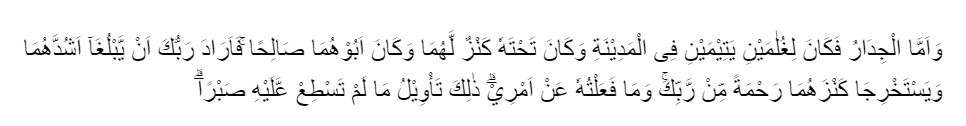 وَاَمَّا الْجِدَارُ فَكَانَ لِغُلٰمَيْنِ يَتِيْمَيْنِ فِى الْمَدِيْنَةِ وَكَانَ تَحْتَهٗ كَنْزٌ لَّهُمَا وَكَانَ اَبُوْهُمَا صَالِحًا ۚفَاَرَادَ رَبُّكَ اَنْ يَّبْلُغَآ اَشُدَّهُمَا
وَيَسْتَخْرِجَا كَنْزَهُمَا رَحْمَةً مِّنْ رَّبِّكَۚ وَمَا فَعَلْتُهٗ عَنْ اَمْرِيْۗ ذٰلِكَ تَأْوِيْلُ مَا لَمْ تَسْطِعْ عَّلَيْهِ صَبْرًاۗ